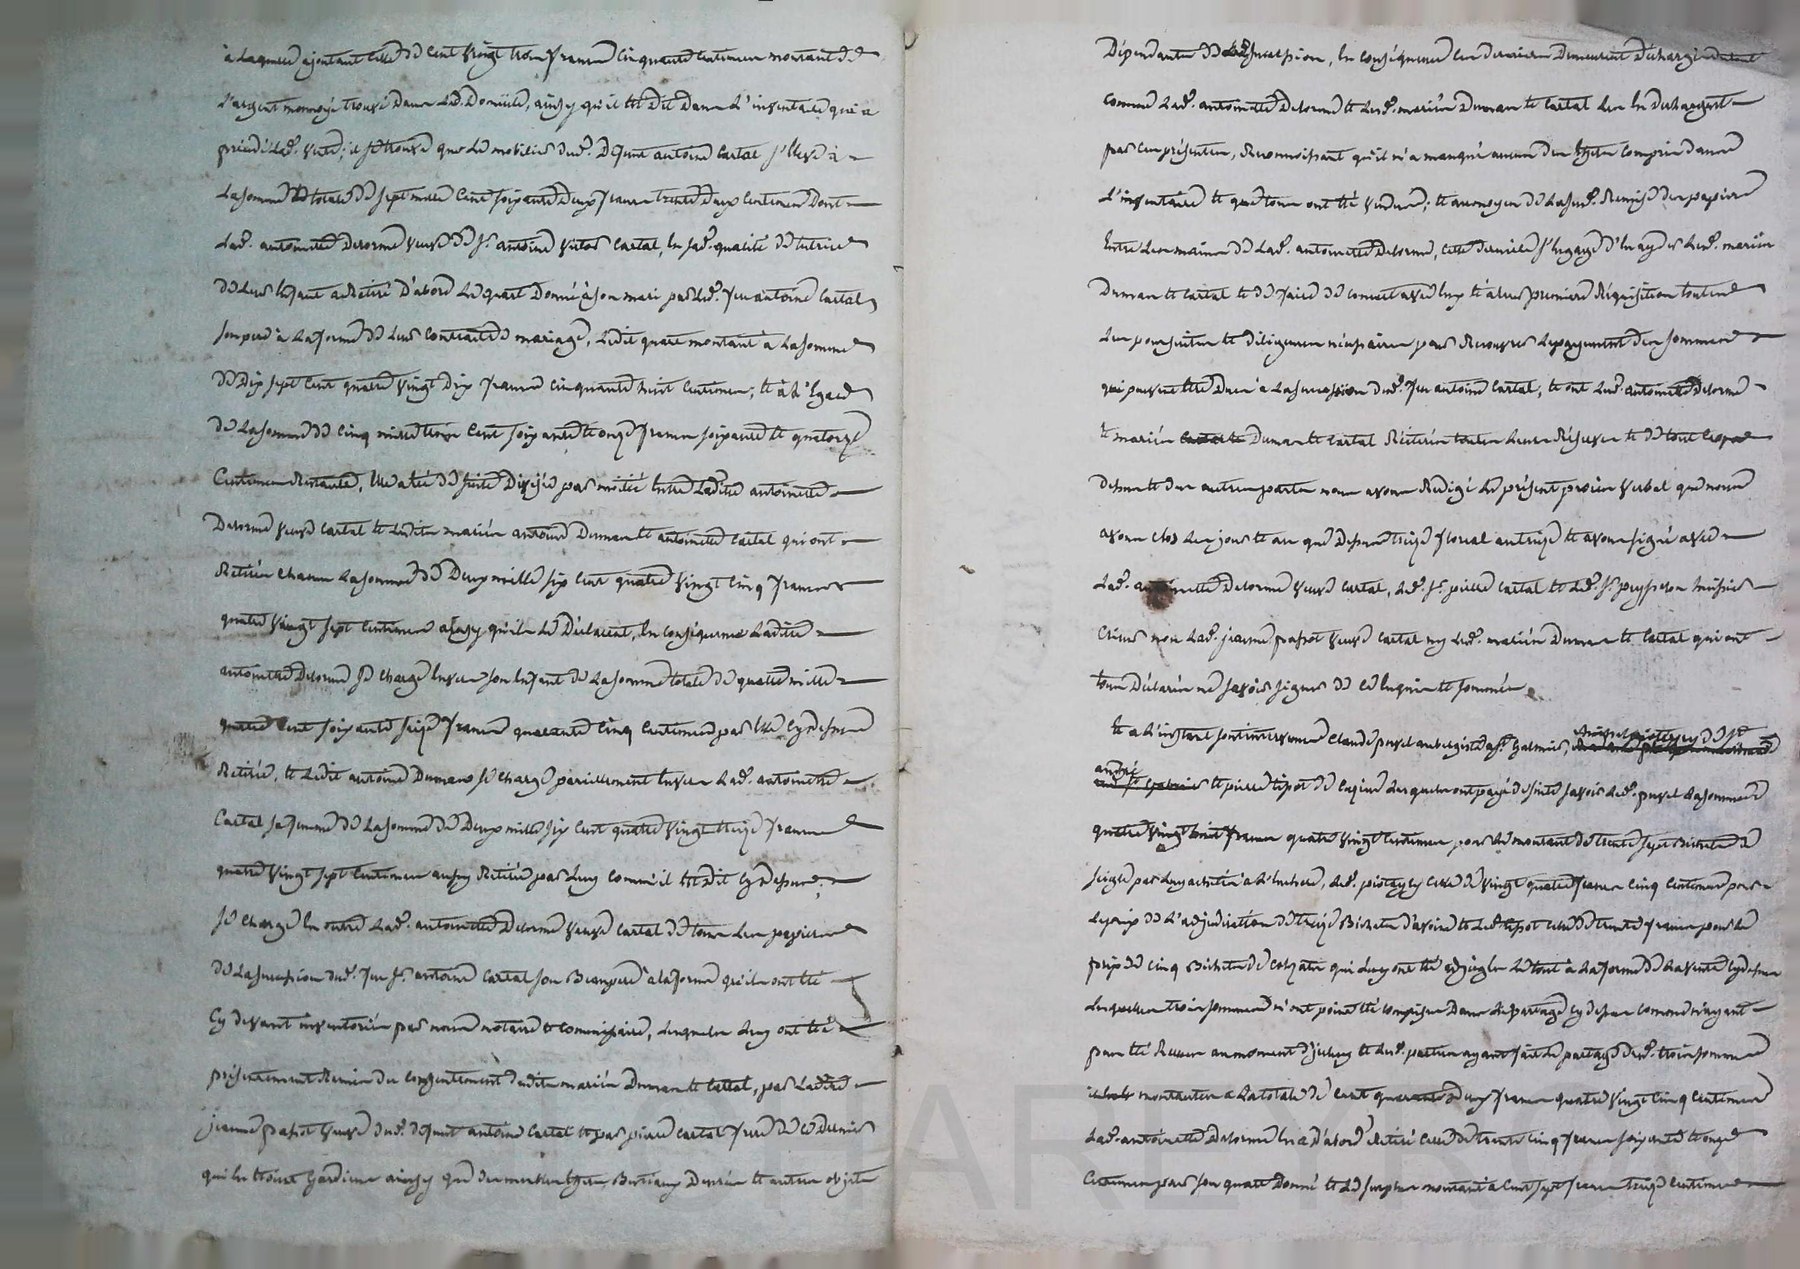 à laquelle ajoutant celle de cent vingt trois francs cinquante centimes montant de
l'argent monnoyé trouvé dans led. domicile, ainsy qu'il est dit dans l'inventaire qui a
précédé lad. vente; il se trouve que le mobilier dud. défunt antoine Cartal s'élève à
la somme totale de sept mille cent soixante deux francs trente deux centimes dont
lad. antoinette Delorme veuve de s.r antoine victor Cartal, en sad. qualité de tutrice
de leur enfant a retiré d'abord le quart donné à son mari par led. feu antoine Cartal
son père à la forme de leur contract de mariage, ledit quart montant à la somme
de dix sept cent quatre vingt dix francs cinquante huit centimes; et à l'égard
de la somme de cinq mille trois cent soixante et onze francs soixante et quatorze
centimes restante, elle a été de suite divisée par moitié entre ladite antoinette
Delorme veuve Cartal et lesdits mariés antoine Dumas et antoinette Cartal qui ont
retirés chacun la somme de deux mille six cent quatre vingt cinq francs
quatre vingt sept centimes ainsy qu'ils le déclarent, en conséquence ladite
antoinette Delorme se charge envers son enfant de la somme totale de quatre mille
quatre cent soixante seize francs quarante cinq centimes par elle cy dessus
retirée, et ledit antoine Dumas se charge pareillement envers lad. antoinette
Cartal sa femme de la somme de deux mille six cent quatre vingt francs
quatre vingt sept centimes aussy retirée par luy comme il est dit cy dessus;
se charge en outre lad. antoinette Delorme veuve Cartal de tous les papiers
de la succession dud. feu s.r antoine Cartal son beaupère à la forme qu'ils ont été
cy devant inventoriés par nous notaire et commissaire, lesquels luy ont été
présentement remis du consentement desdits mariés Dumas et Cartal, par ladite
jeanne pasrot veuve dud. défunt antoine Cartal et par pierre Cartal frère de ce dernier
qui en étoient gardiens ainsy que des meubles effets, bestiaux denrées et autres objets
Dépendants de lad. succession, en conséquence ces derniers demeurent déchargés
comme lad. antoinette Delorme et lesd. mariés Dumas et Cartal les en déchargent
par ces présentes, reconnoissant qu'il n'a manqué aucun des effets compris dans
l'inventaire et que tous ont été vendus; et au moyen de la susd. remise des papiers
entre les mains de lad. antoinette Delorme, cette dernière s'engage d'en ayder lesd. mariés
Dumas et Cartal et de faire de concert avec eux et à leur première réquisition toutes
les poursuites et diligences nécessaires pour recouvrer le payement des sommes
qui peuvent être dues à la succession dud. feu antoine Cartal, et ont lesd. antoinette Delorme
et mariés Dumas et Cartal réitérés toutes leurs réserves et de tout ce que
dessus et des autres parts nous avons rédigé le présent procès verbal que nous
avons clos les jours et an que dessus treize floreal an treize et avons signé avec
lad. antoinette Delorme veuve Cartal, led. s.r pierre Cartal et led. s.r peyssson huissier
crieur non lad. jeanne pasrot veuve Cartal ny lesd. mariés Dumas et Cartal qui ont
tous déclarés ne savoir signer de ce enquis et sommés
et à l'instant sont intervenus Claude puvel aubergiste à s.t Galmier,
andré et pierre tipot de lesquels ont payé de suite savoir led. puvel la somme de
quatre vingt huit francs quatre vingt centimes pour le montant de trente sept bichets de
seigle par luy achetés à l'enchere, led. celle de vingt quatre francs cinq centimes pour
le prix de l'adjudication de treize bichets d'avoine et led. tipot celle de trente francs pour le
prix de cinq bichets de colzats qui luy ont été adjugés le tout à la forme de la vente cy dessus
lesquelles trois sommes n'ont point été comprises dans le partage cy dessus comme n'ayant
pas été reçues au moment d'iceluy et lesd. parties ayant fait le partage desd. trois sommes
montantes à la totale de cent quarante deux francs quatre vingt cinq centimes
lad. antoinette Delorme en a d'abord retiré celle de trente cinq francs soixante et onze
centimes pour son quart donné et le surplus montant à cent sept francs treize centimes